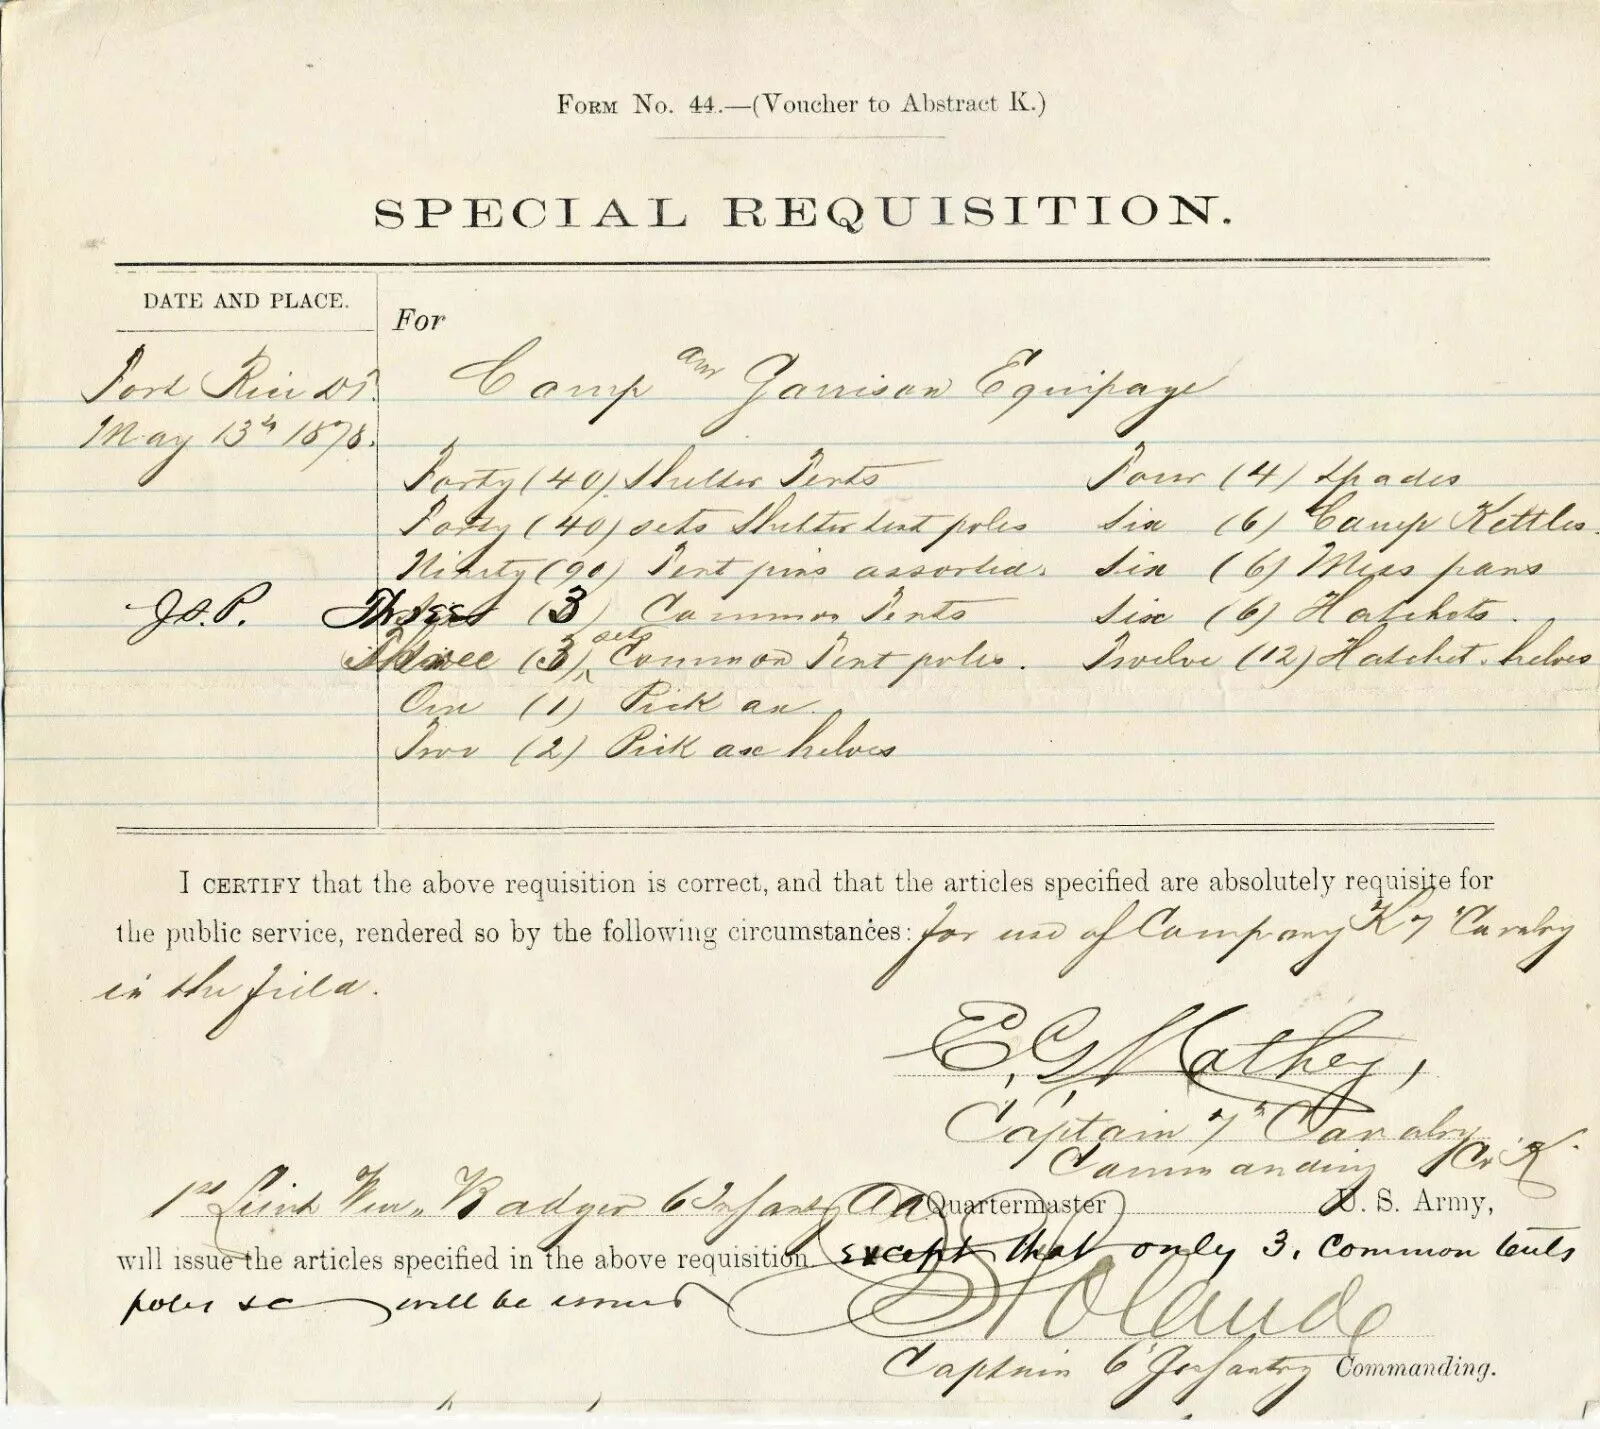 FORM No. 44.—(Voucher to Abstract K.)
SPECIAL REQUISITION.
DATE AND PLACE.
For
Fort Rice D.T.
May 13th 1878.
Camp and Garrison Equipage
Forty (40) Shelter Tents
Forty (40) sets Shelter tent poles
Ninety (90) Tent pins assorted.
J.S.P. Three (3) Common Tents
Three (3) sets Common Tent poles.
One (1) Pick ax.
Two (2) Pick ax helves
Four (4) Spades
Six (6) Camp Kettles.
Six (6) Mess pans
Six (6) Hatchets.
Twelve (12) Hatchet helves
I CERTIFY that the above requisition is correct, and that the articles specified are absolutely requisite for
the public service, rendered so by the following circumstances: for use of Company K 7 Cavalry
in the field.
E. G. Mathey,
Captain 7th Cavalry
Commanding Co K.
1st Lieut Wm. Badger 6 Infantry AA Quartermaster U. S. Army,
will issue the articles specified in the above requisition. except that only 3. Common tents
poles &c will be issued
Captain 6 Infantry Commanding.